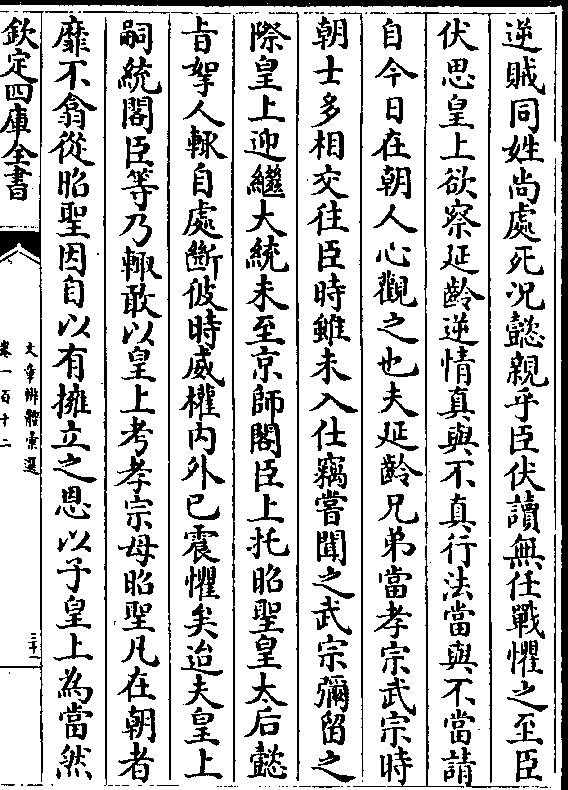 逆賊同姓尚處死况懿親乎臣伏讀無任戰懼之至臣
伏思皇上欲察延齡逆情真與不真行法當與不當請
自今日在朝人心觀之也夫延齡兄弟當孝宗武宗時
朝士多相交往臣時雖未入仕竊嘗聞之武宗彌留之
際皇上迎繼大統未至京師閣臣上托昭聖皇太后懿
旨拏人輙自處斷彼時威權內外已震懼矣迨夫皇上
嗣統閣臣等乃輙敢以皇上考孝宗母昭聖凡在朝者
靡不翕從昭聖因自以有擁立之恩以子皇上為當然
欽定四庫全書
文章辨體彙選
卷一百十二
三十一